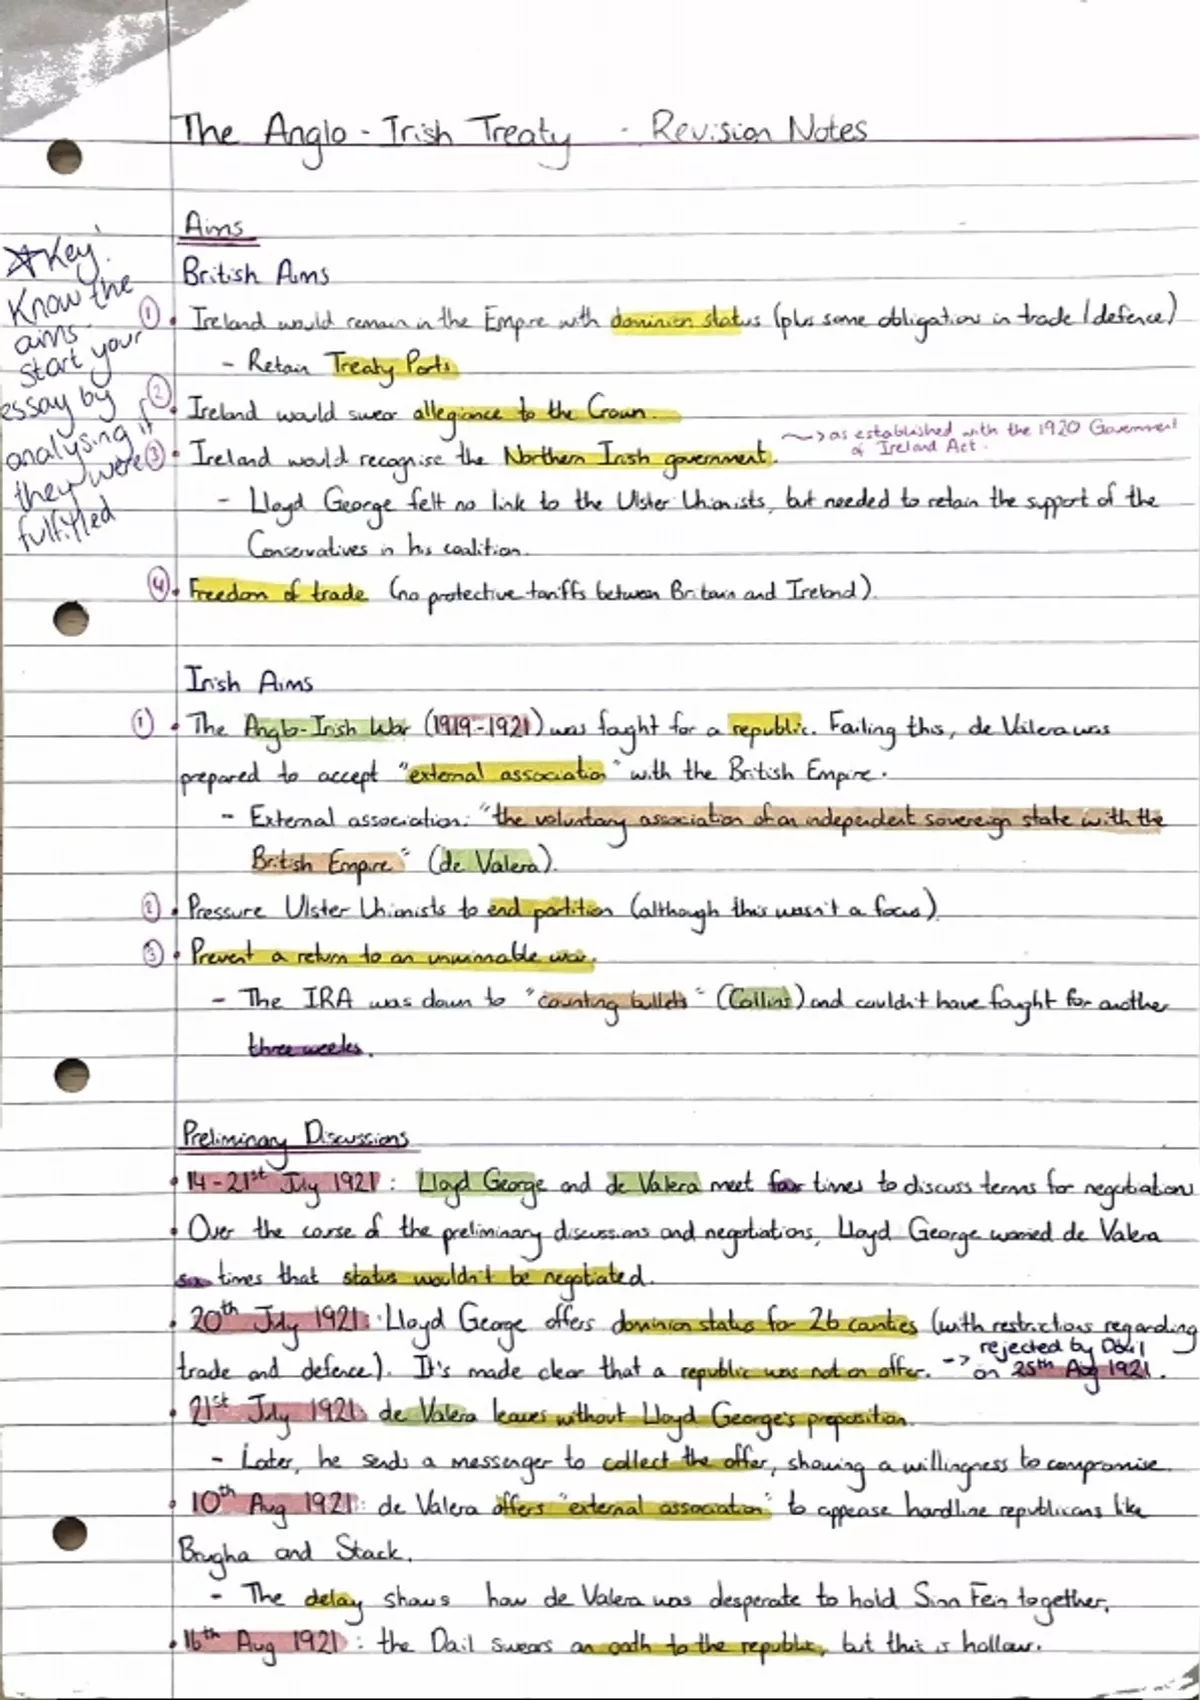 The Anglo-Irish Treaty - Revision Notes
Aims
☆Key!
Know the
aims.
Start your
essay by
analysing if
they were
fulfilled
British Aims
① • Ireland would remain in the Empire with dominion status (plus some obligations in trade/defence)
- Retain Treaty Ports
② • Ireland would swear allegiance to the Crown.
③ • Ireland would recognise the Northern Irish government.
~> as established with the 1920 Government
of Ireland Act.
- Lloyd George felt no link to the Ulster Unionists, but needed to retain the support of the
Conservatives in his coalition.
④ • Freedom of trade (no protective tariffs between Britain and Ireland).
Irish Aims
① • The Anglo-Irish War (1919-1921) was fought for a republic. Failing this, de Valera was
prepared to accept "external association" with the British Empire.
- External association: "the voluntary association of an independent sovereign state with the
British Empire" (de Valera).
② • Pressure Ulster Unionists to end partition (although this wasn't a focus)
③ • Prevent a return to an unwinnable war.
- The IRA was down to "counting bullets" (Collins) and couldn't have fought for another
three weeks.
Preliminary Discussions
• 14-21st July 1921: Lloyd George and de Valera meet four times to discuss terms for negotiations
• Over the corse of the preliminary discussions and negotiations, Lloyd George warned de Valera
six times that status wouldn't be negotiated.
• 20th July 1921: Lloyd George offers dominion status for 26 counties (with restrictions regarding
trade and defence). It's made clear that a republic was not on offer. -> rejected by Dáil
on 25th Aug 1921.
• 21st July 1921: de Valera leaves without Lloyd George's preposition.
- Later, he sends a messenger to collect the offer, showing a willingness to compromise.
• 10th Aug 1921: de Valera offers "external association" to appease hardline republicans like
Brugha and Stack.
- The delay shows how de Valera was desperate to hold Sinn Fein together.
• 16th Aug 1921: the Dail swears an oath to the republic, but this is hollow.